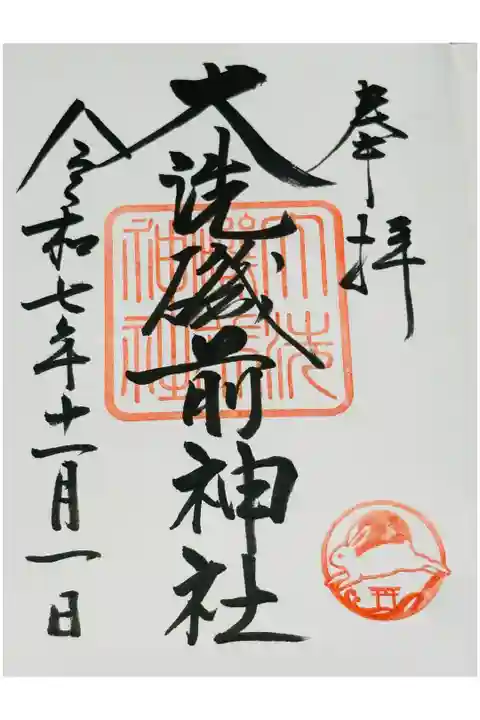 奉拝
大洗磯前神社
大洗磯前神社
令和七年十一月一日